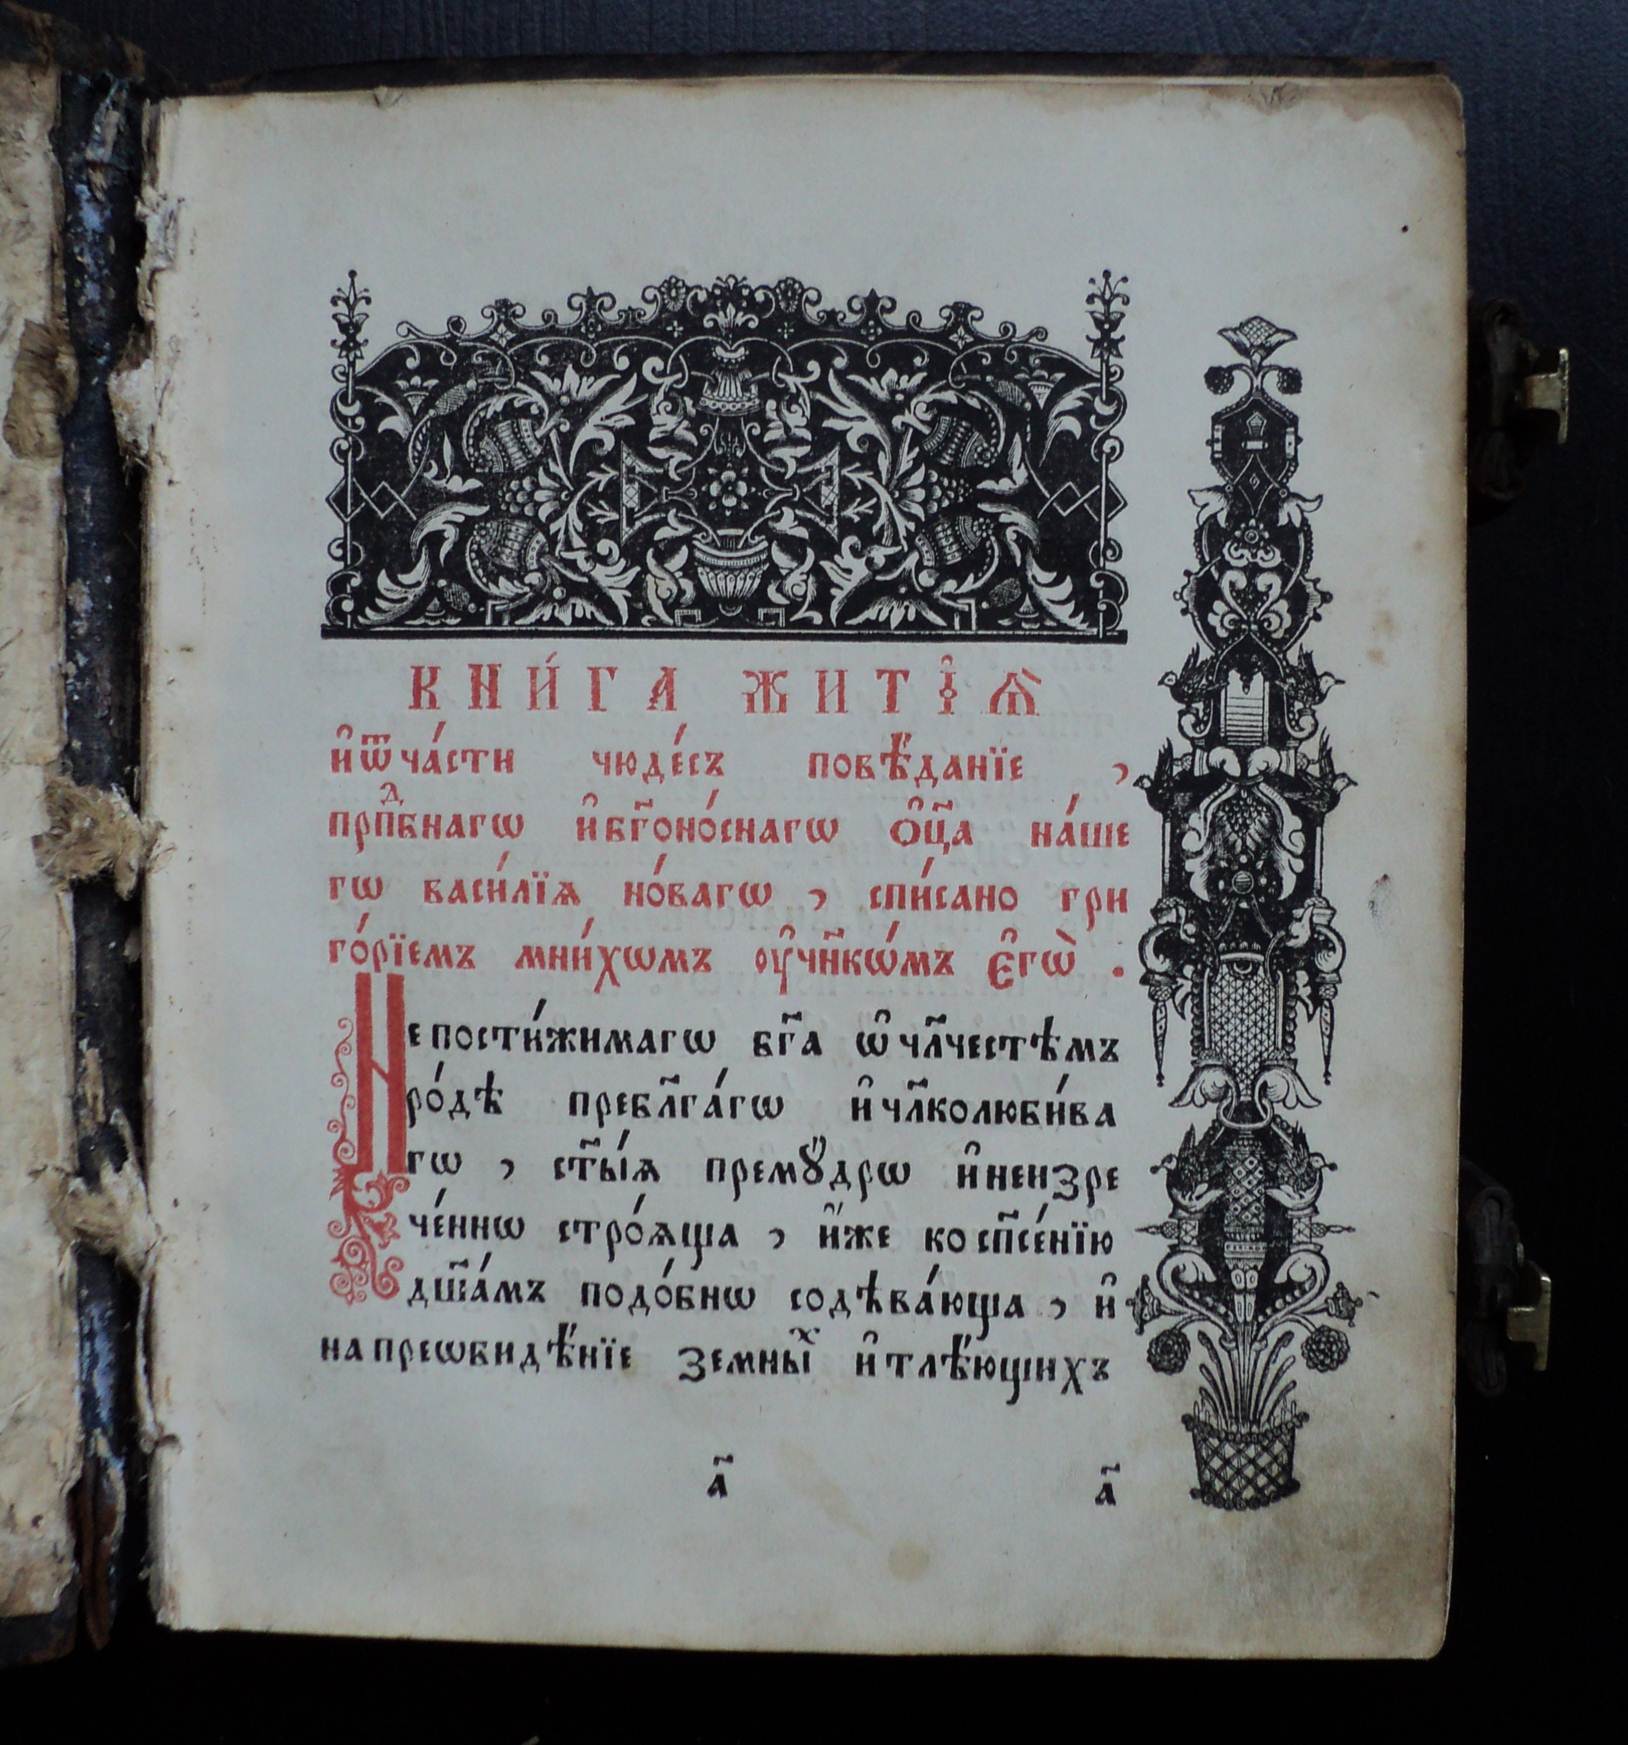 КНИ́ГА ЖИТІ̑Ѧ̀
и҆ѿча́сти чюде́съ повѣ́данїе ,
прⷣпбнагѡ и҆бг҃оно́снагѡ ѻ҆ц҃а на́ше
гѡ васи́лїѧ но́вагѡ , спи́сано гри
го́рїемъ мни́хѡмъ оу҆чн҃кѡ́мъ є҆гѡ̀ .
Непости́жимагѡ бг҃а ѡ҆чл҃честѣмъ
ро́дѣ пребл҃га́гѡ и҆чл҃колюби́ва
гѡ , ст҃ы́ѧ премꙋ́дрѡ и҆неизре
че́ннѡ стро́ѧща , и҆́же косп҃се́нїю
дш҃а́мъ подо́бнѡ содѣва́юща , и҆
напреѡбидѣ́нїе земны́ⷯ и҆тлѣ́ющихъ
а҃ а҃